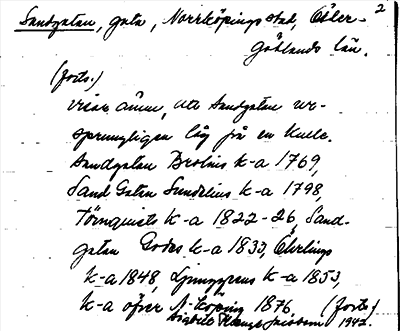 2
Sandgatan, gata, Norrköpings stad, Öster-
götlands län.
(forts.)
visar ännu, att Sandgatan ur-
sprungligen låg på en kulle.
Sandgatan Brolins k-a 1769,
Sand Gatan Sundelius k-a 1798,
Törnquists k-a 1822-26, Sand-
gatan Bodes k-a 1833, Öhrlings
k-a 1848, Ljunggrens k-a 1853,
k-a öfver N-köping 1876. (forts.)
1942